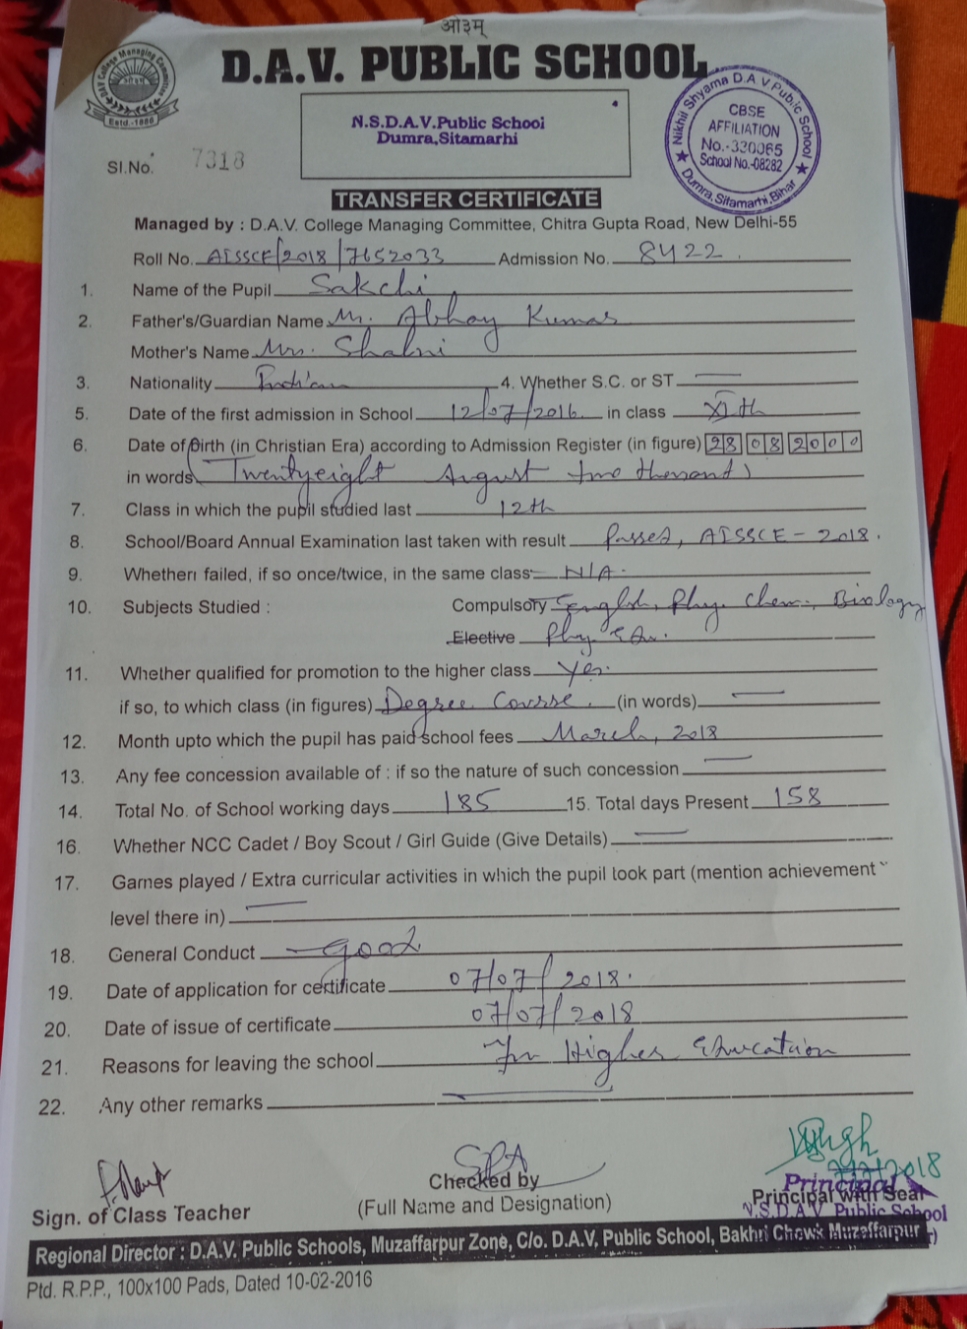 ओ३म्
D.A.V. PUBLIC SCHOOL
DAV College Managing Committee
Estd.-1886
N.S.D.A.V.Public School
Dumra,Sitamarhi
Nikhil Shyama D.A.V Public School
CBSE
AFFILIATION
No.-330065
School No.-08282
Dumra, Sitamarhi, Bihar
Sl.No. 7318
TRANSFER CERTIFICATE
Managed by : D.A.V. College Managing Committee, Chitra Gupta Road, New Delhi-55
Roll No. AISSCE/2018/7652033 Admission No. 8422
1. Name of the Pupil Sakchi
2. Father's/Guardian Name Mr. Abhay Kumar
Mother's Name Mrs. Shalni
3. Nationality Indian 4. Whether S.C. or ST —
5. Date of the first admission in School 12/07/2016 in class XIth
6. Date of Birth (in Christian Era) according to Admission Register (in figure) 28 08 2000
in words (Twentyeight August two thousand)
7. Class in which the pupil studied last 12th
8. School/Board Annual Examination last taken with result Passed, AISSCE-2018.
9. Whether failed, if so once/twice, in the same class N/A.
10. Subjects Studied : Compulsory English, Phy, Chem., Biology
Elective Phy Edu.
11. Whether qualified for promotion to the higher class Yes.
if so, to which class (in figures) Degree Course. (in words) —
12. Month upto which the pupil has paid school fees March, 2018
13. Any fee concession available of : if so the nature of such concession —
14. Total No. of School working days 185 15. Total days Present 158
16. Whether NCC Cadet / Boy Scout / Girl Guide (Give Details) —
17. Games played / Extra curricular activities in which the pupil look part (mention achievement
level there in) —
18. General Conduct Good
19. Date of application for certificate 07/07/2018.
20. Date of issue of certificate 07/07/2018
21. Reasons for leaving the school For Higher Education
22. Any other remarks —
Sign. of Class Teacher
Checked by
(Full Name and Designation)
7/7/2018
Principal
Principal with Seal
N.S.D.A.V. Public School
Regional Director : D.A.V. Public Schools, Muzaffarpur Zone, C/o. D.A.V, Public School, Bakhri Chowk Muzaffarpur
Ptd. R.P.P., 100x100 Pads, Dated 10-02-2016